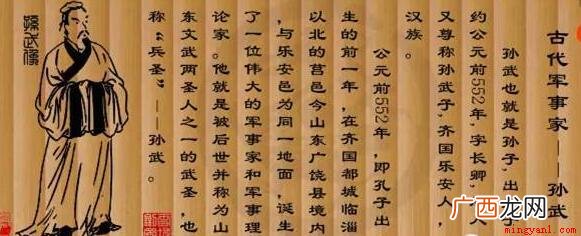 古代军事家——孙武
孙武也就是孙子,出
约公元前552年,字长卿,人
又尊称孙武子,齐国乐安人,
汉族。
公元前552年,即孔子出
生的前一年,在齐国都城临淄
以北的莒邑今山东广饶县境内
,与乐安邑为同一地面,诞生
了一位伟大的军事家和军事理
论家。他就是被后世并称为山
东文武两圣人之一的武圣,也
称“兵圣”——孙武。
孫武像
广西龙网
mingyanl.com